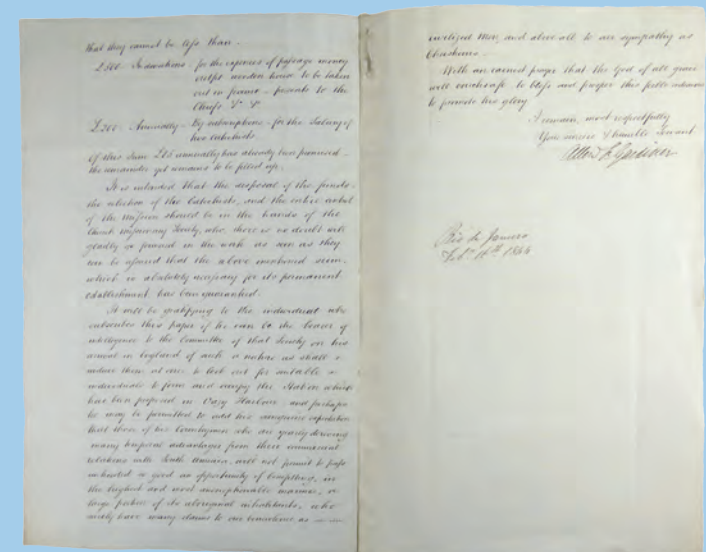 that they cannot be less than -
£500 - In donations - for the expences of passage money
outfit wooden house to be taken
out in frame - presents to the
Chiefs &c &c
£200 - Annually - By subscriptions - for the Salary of
two Catechists.
Of this Sum £25 annually has already been promised -
the remainder yet remains to be filled up.
It is intended that the disposal of the funds -
the selection of the Catechists, and the entire control
of the Mission should be in the hands of the
Church Missionary Society, who, there is no doubt will
gladly go forward in the work as soon as they
can be assured that the above mentioned sum,
which is absolutely necessary for its permanent
establishment has been guaranteed.
It will be gratifying to the individual who
subscribes this paper if he can be the bearer of
intelligence to the Committee of that Society on his
arrival in England of such a nature as shall
induce them at once to look out for suitable
individuals to form and occupy the Station which
has been proposed in Oazy Harbour - and perhaps
he may be permitted to add his sanguine expectation
that those of his Countrymen who are yearly deriving
many temporal advantages from their commercial
relations with South America, will not permit to pass
unheeded so good an opportunity of benefiting, in
the highest and most unexceptionable manner, a
large portion of its aboriginal inhabitants, who
surely have many claims to our benevolence as
civilized Men, and above all to our sympathy as
Christians -
With an earnest prayer that the God of all grace
will vouchsafe to bless and prosper this feeble endeavour
to promote his glory
I remain, most respectfully
Your sincere & humble Servant
Allen F. Gardiner
Rio de Janeiro